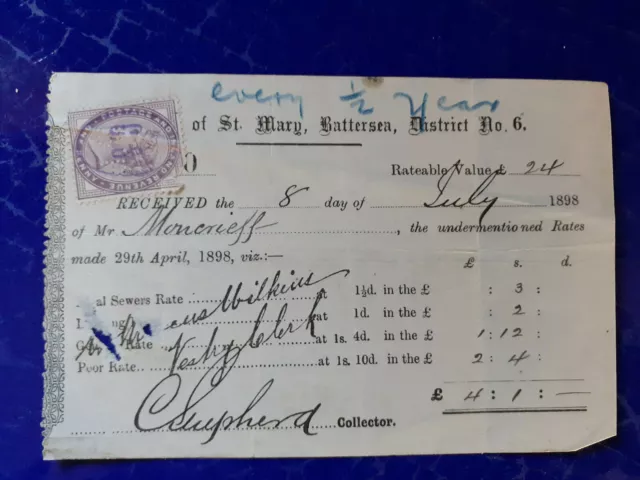 every ½ Year
of St. Mary, Battersea, District No. 6.
0
Rateable Value £ 24
POSTAGE AND INLAND REVENUE
RECEIVED the 8 day of July 1898
of Mr Moncrieff, the undermentioned Rates
made 29th April, 1898, viz.:—
£ s. d.
al Sewers Rate at 1½d. in the £ : 3 :
at 1d. in the £ : 2 :
Rate at 1s. 4d. in the £ 1 : 12 :
Poor Rate at 1s. 10d. in the £ 2 : 4 :
Wilkins
Vestry Clerk
£ 4 : 1 : —
C Shepherd Collector.